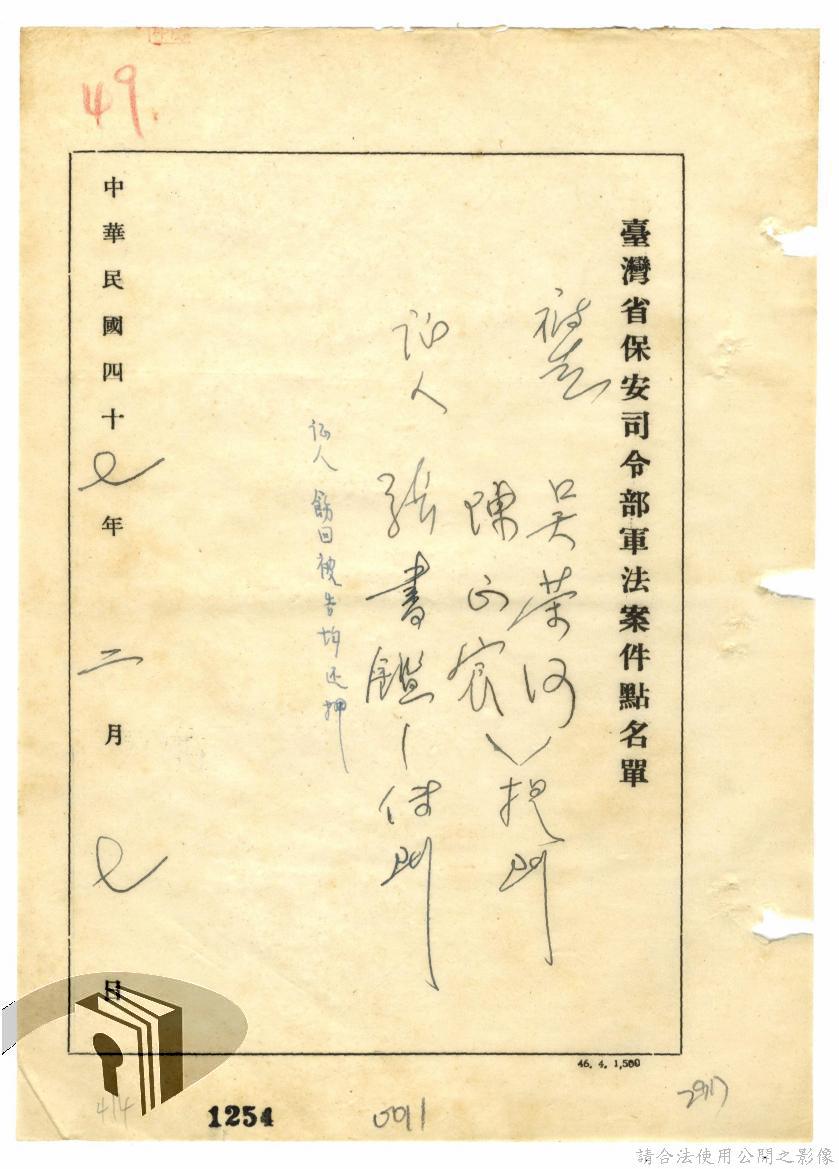 49.
臺灣省保安司令部軍法案件點名單
被告
吳荣河
陳正宸
提訊
証人
張書鑑
傳訊
証人飭回被告均还押
中華民國四十七年二月七日
46. 4. 1,500
414
1254
0011
請合法使用公開之影像